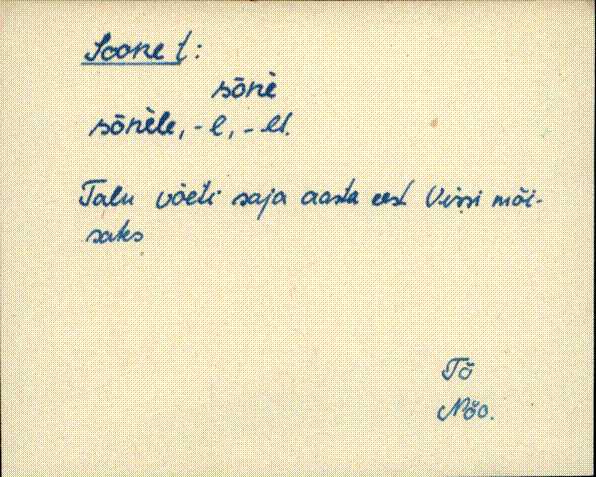 Soone t:
sōnè
sōnèle, -l, -lt.
Talu võeti saja aasta eest Vissi mõi-
saks
Tõ
Nõo.